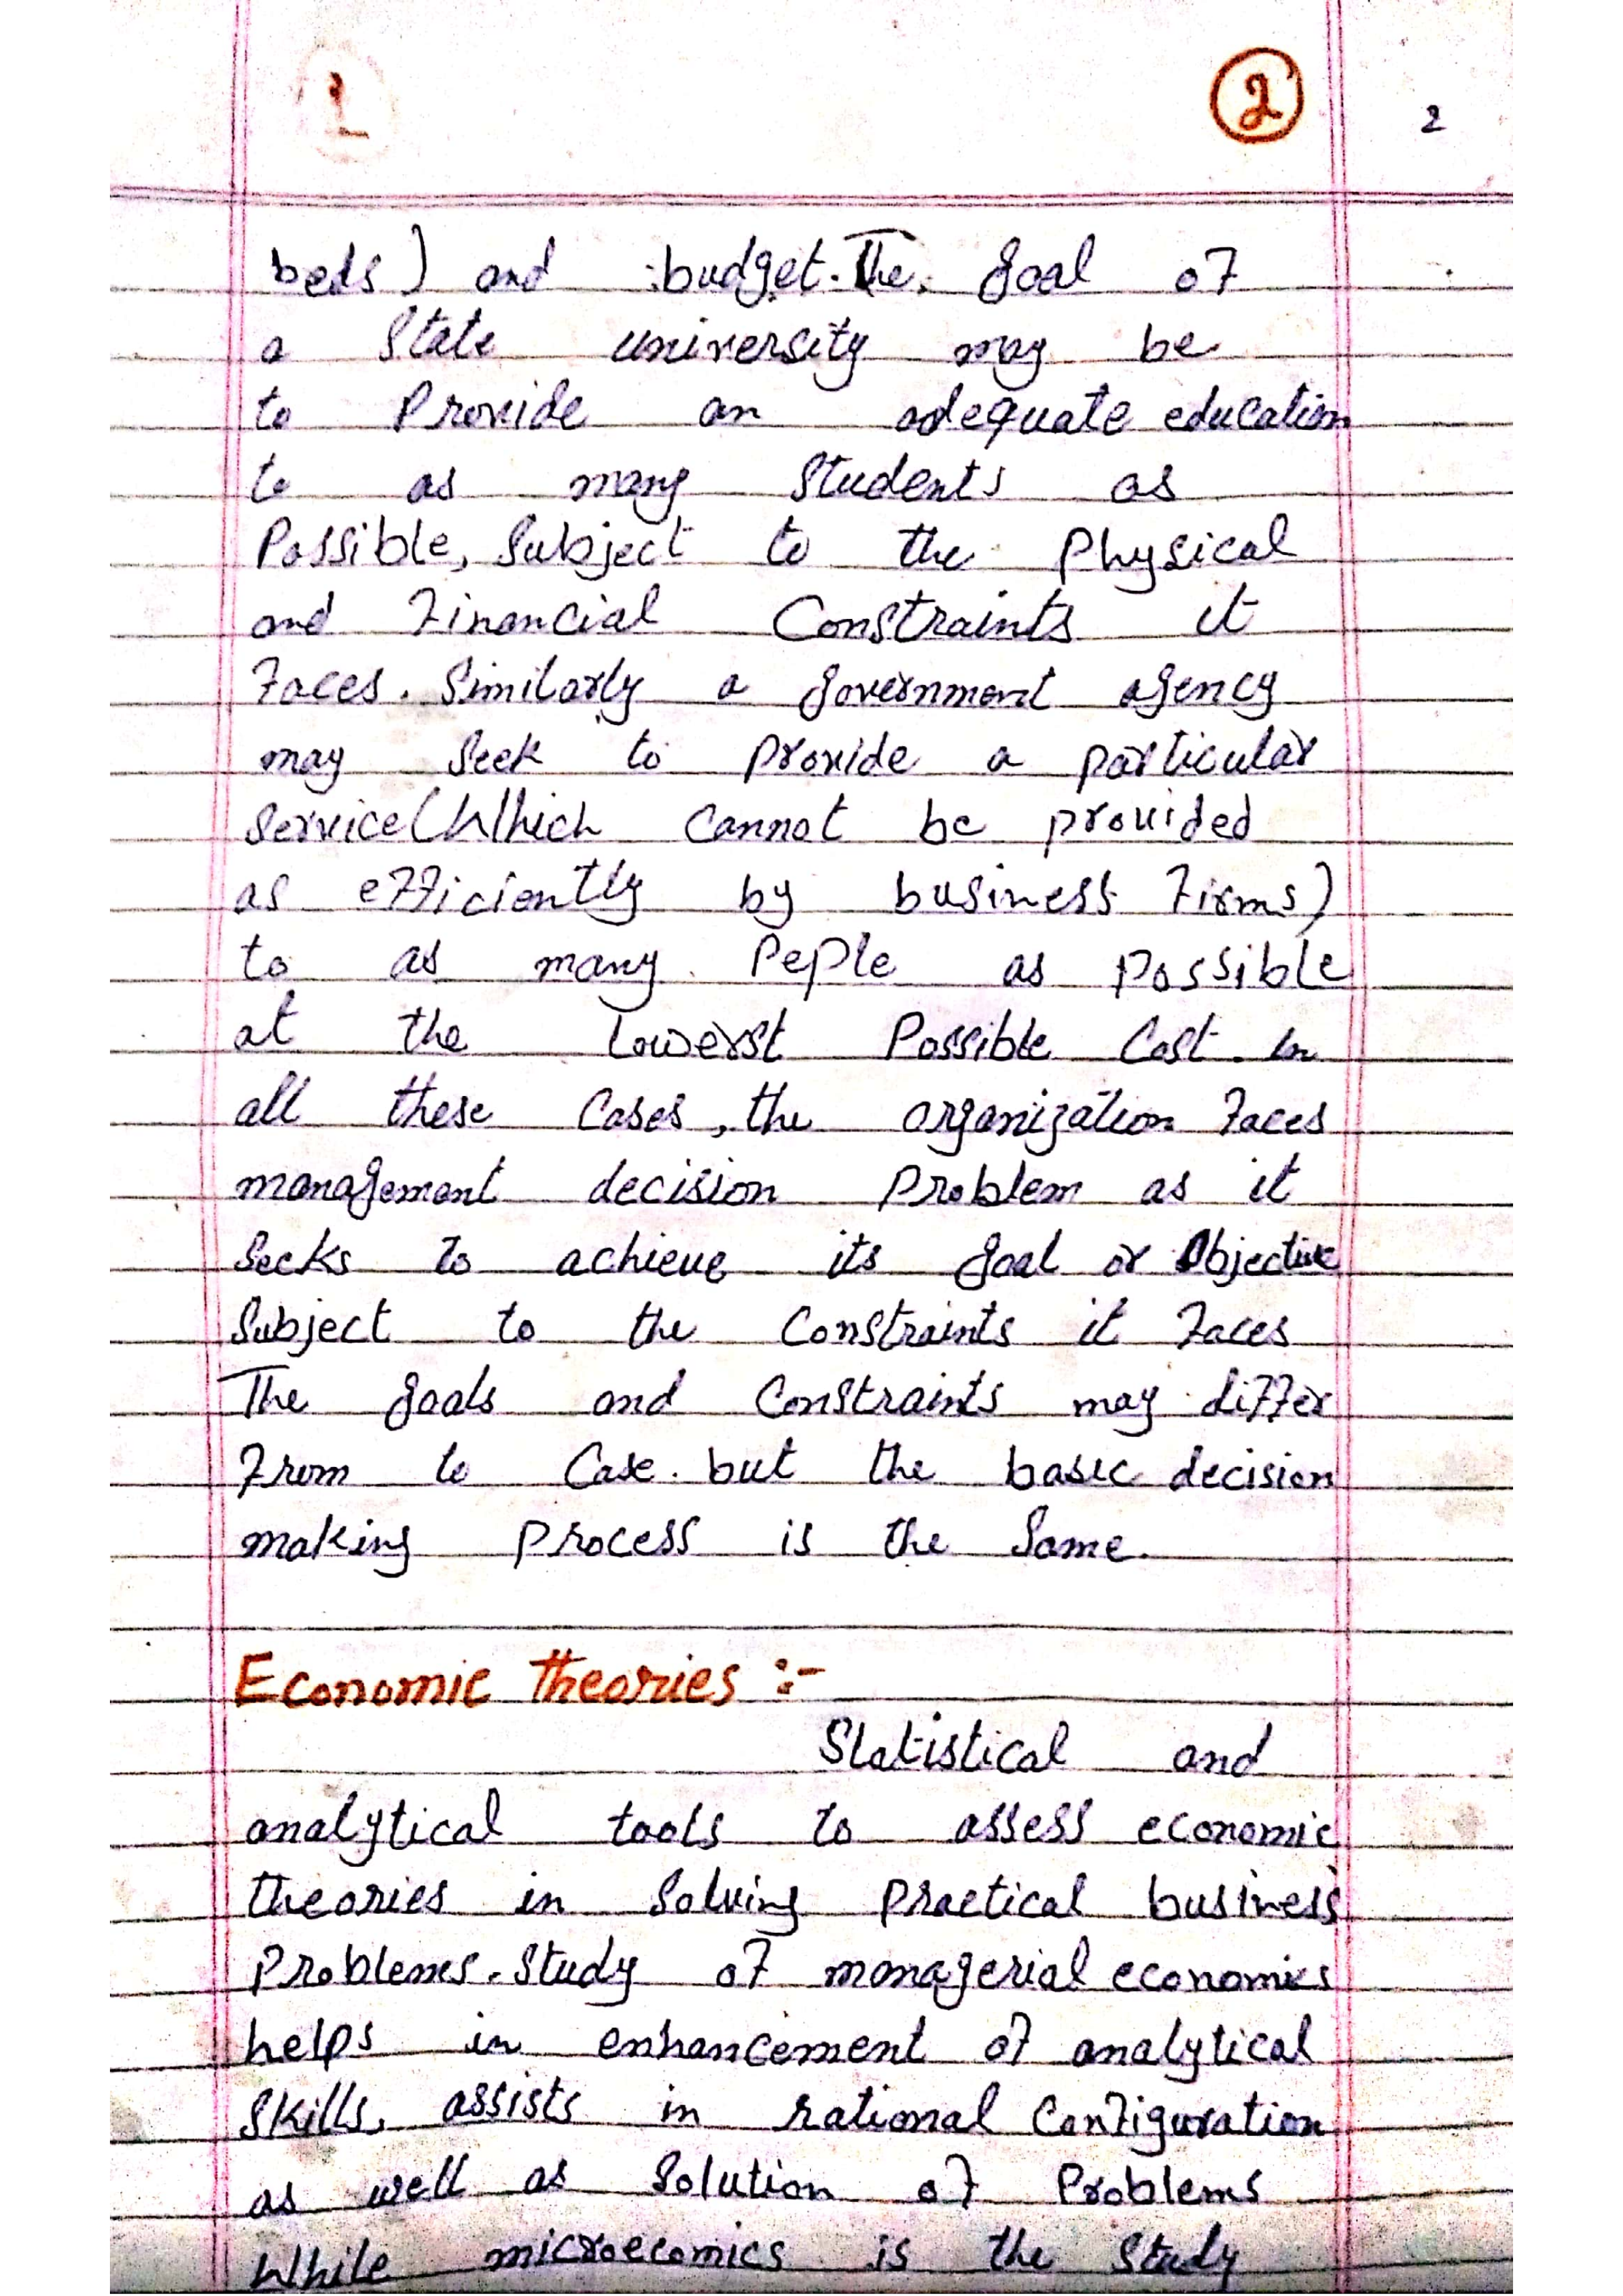 1
2
2
beds) and budget. The goal of
a State university may be
to Provide an adequate education
to as many Students as
Possible, Subject to the Physical
and Financial Constraints it
Faces. Similarly a government agency
may Seek to provide a particular
Service (Which cannot be provided
as efficiently by business Firms)
to as many PePle as possible
at the Lowerst Possible Cost. In
all these Cases, the organization Faces
management decision Problem as it
Seeks to achieve its goal or Objective
Subject to the Constraints it Faces
The goals and Constraints may differ
From to Case. but the basic decision
making Process is the Same.
Economic theories :-
Statistical and
analytical tools to assess economic
theories in Solving Practical business
Problems. Study of managerial economics
helps in enhancement of analytical
Skills, assists in rational Configuration
as well as Solution of Problems
While microecomics is the Study